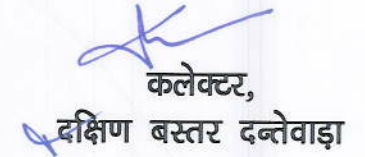 कलेक्टर,
दक्षिण बस्तर दन्तेवाड़ा